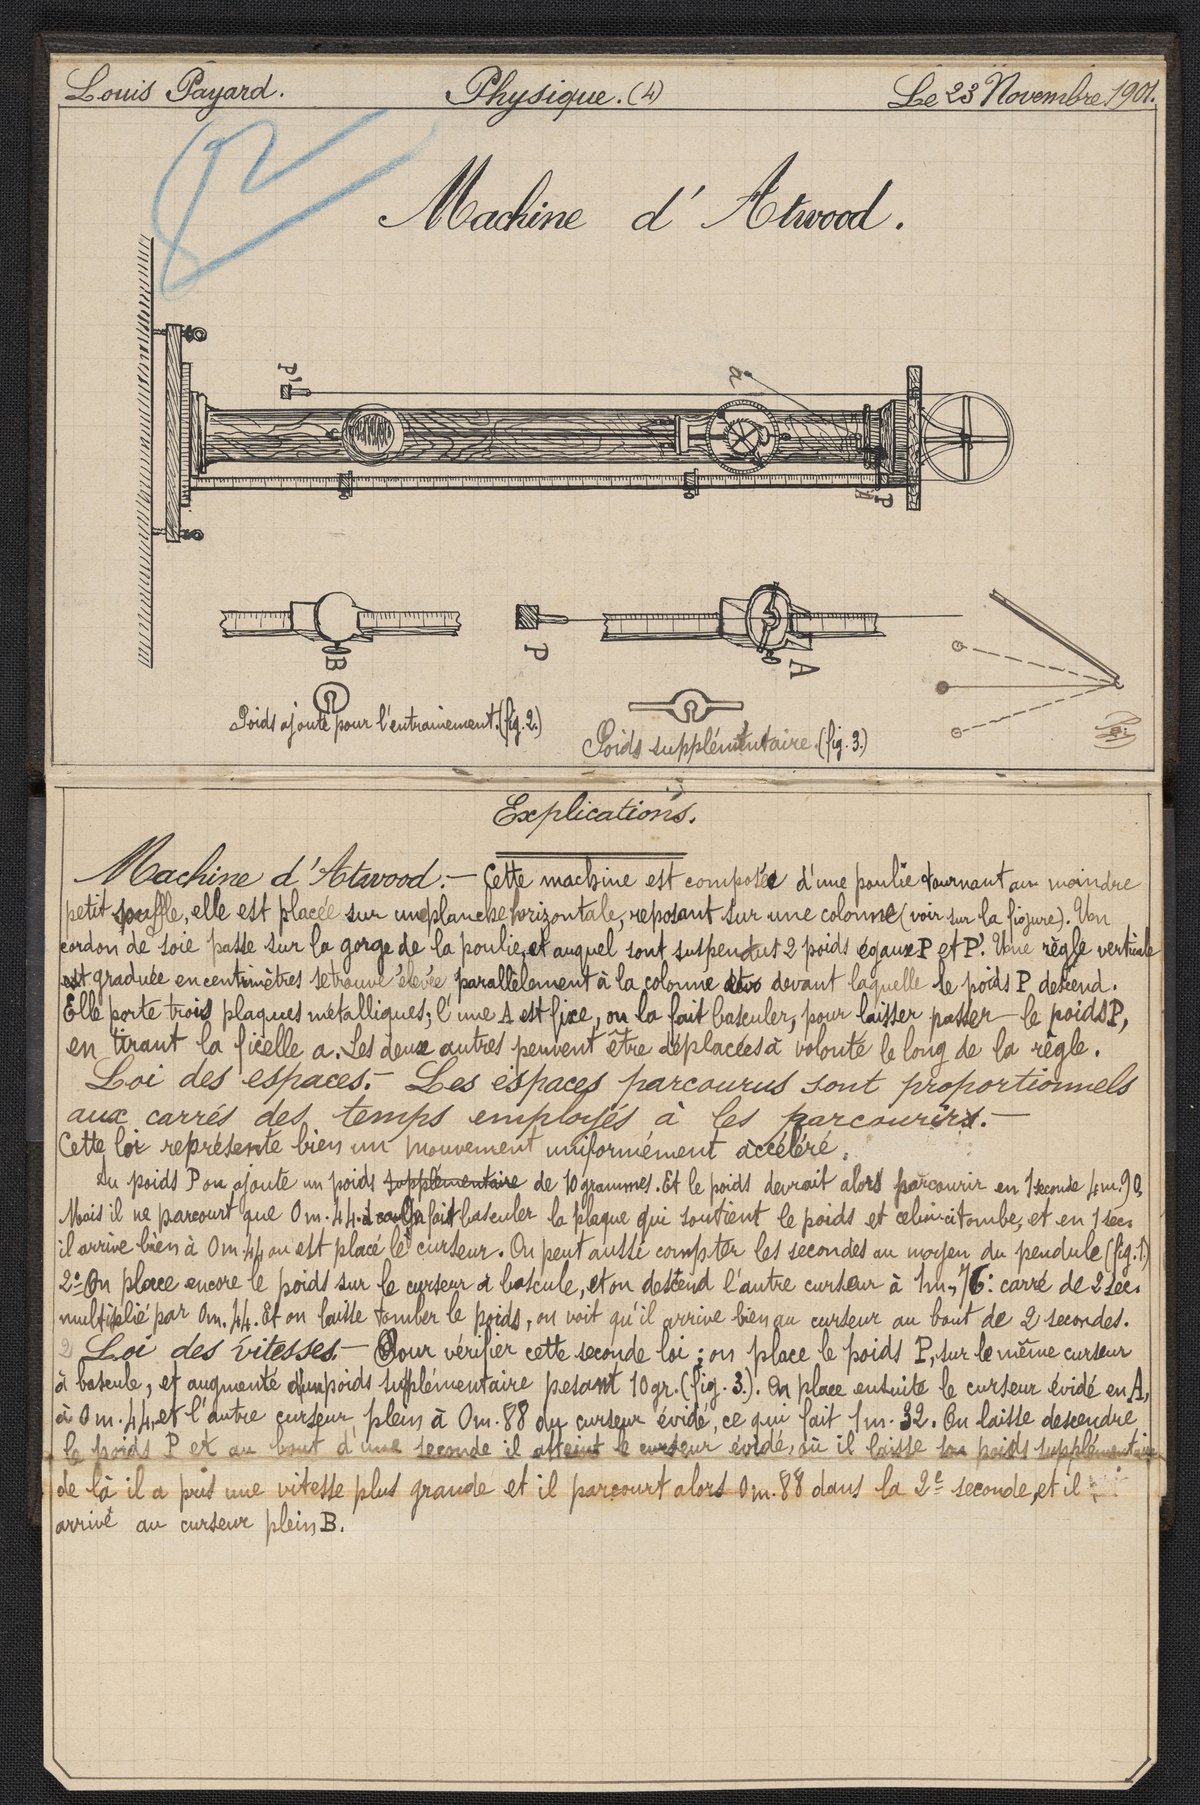 Louis Payard. Physique. (4) Le 23 Novembre 1901.
Machine d'Atwood.
P'
a
P
B
P
A
Poids ajouté pour l'entrainement. (fig. 2.)
Poids supplémentaire. (fig. 3.)
Explications.
Machine d'Atwood. — Cette machine est composée d'une poulie tournant au moindre
petit souffle, elle est placée sur une planche horizontale, reposant sur une colonne (voir sur la figure). Un
cordon de soie passe sur la gorge de la poulie, et auquel sont suspendus 2 poids égaux P et P'. Une règle verticale
est graduée en centimètres se trouve élevée parallèlement à la colonne devant laquelle le poids P descend.
Elle porte trois plaques métalliques; l'une A est fixe, on la fait basculer, pour laisser passer le poids P,
en tirant la ficelle a. Les deux autres peuvent être déplacées à volonté le long de la règle.
Loi des espaces. — Les espaces parcourus sont proportionnels
aux carrés des temps employés à les parcourirs. —
Cette loi représente bien un mouvement uniformément accéléré.
Au poids P on ajoute un poids supplémentaire de 10 grammes. Et le poids devrait alors parcourir en 1 seconde 4m.90,
Mais il ne parcourt que 0m.44. fait basculer la plaque qui soutient le poids et celui-ci tombe, et en 1 sec.
il arrive bien à 0m 44 ou est placé le curseur. On peut aussi compter les secondes au moyen du pendule (fig. 1.)
2º On place encore le poids sur le curseur à bascule, et on descend l'autre curseur à 1m,76: carré de 2 sec.
multiplié par 0m.44. Et on laisse tomber le poids, on voit qu'il arrive bien au curseur au bout de 2 secondes.
Loi des vitesses. — Pour vérifier cette seconde loi; on place le poids P, sur le même curseur
à bascule, et augmenté d'un poids supplémentaire pesant 10 gr. (fig. 3.). On place ensuite le curseur évidé en A,
à 0m.44, et l'autre curseur plein à 0m.88 du curseur évidé, ce qui fait 1m.32. On laisse descendre
le poids P et au bout d'une seconde il atteint le curseur évidé, où il laisse son poids supplémentaire
de là il a pris une vitesse plus grande et il parcourt alors 0m.88 dans la 2e seconde, et il
arrive au curseur plein B.